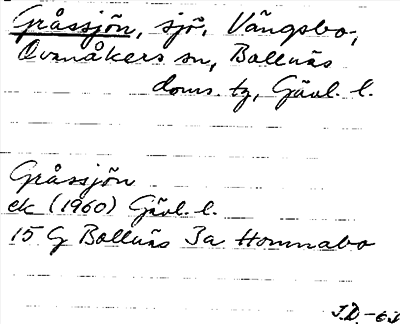 Gråssjön, sjö, Vängsbo,
Ovanåkers sn, Bollnäs
doms. tg, Gävl. l.
Gråssjön
ek (1960) Gävl. l.
15 G Bollnäs 3a Homnabo